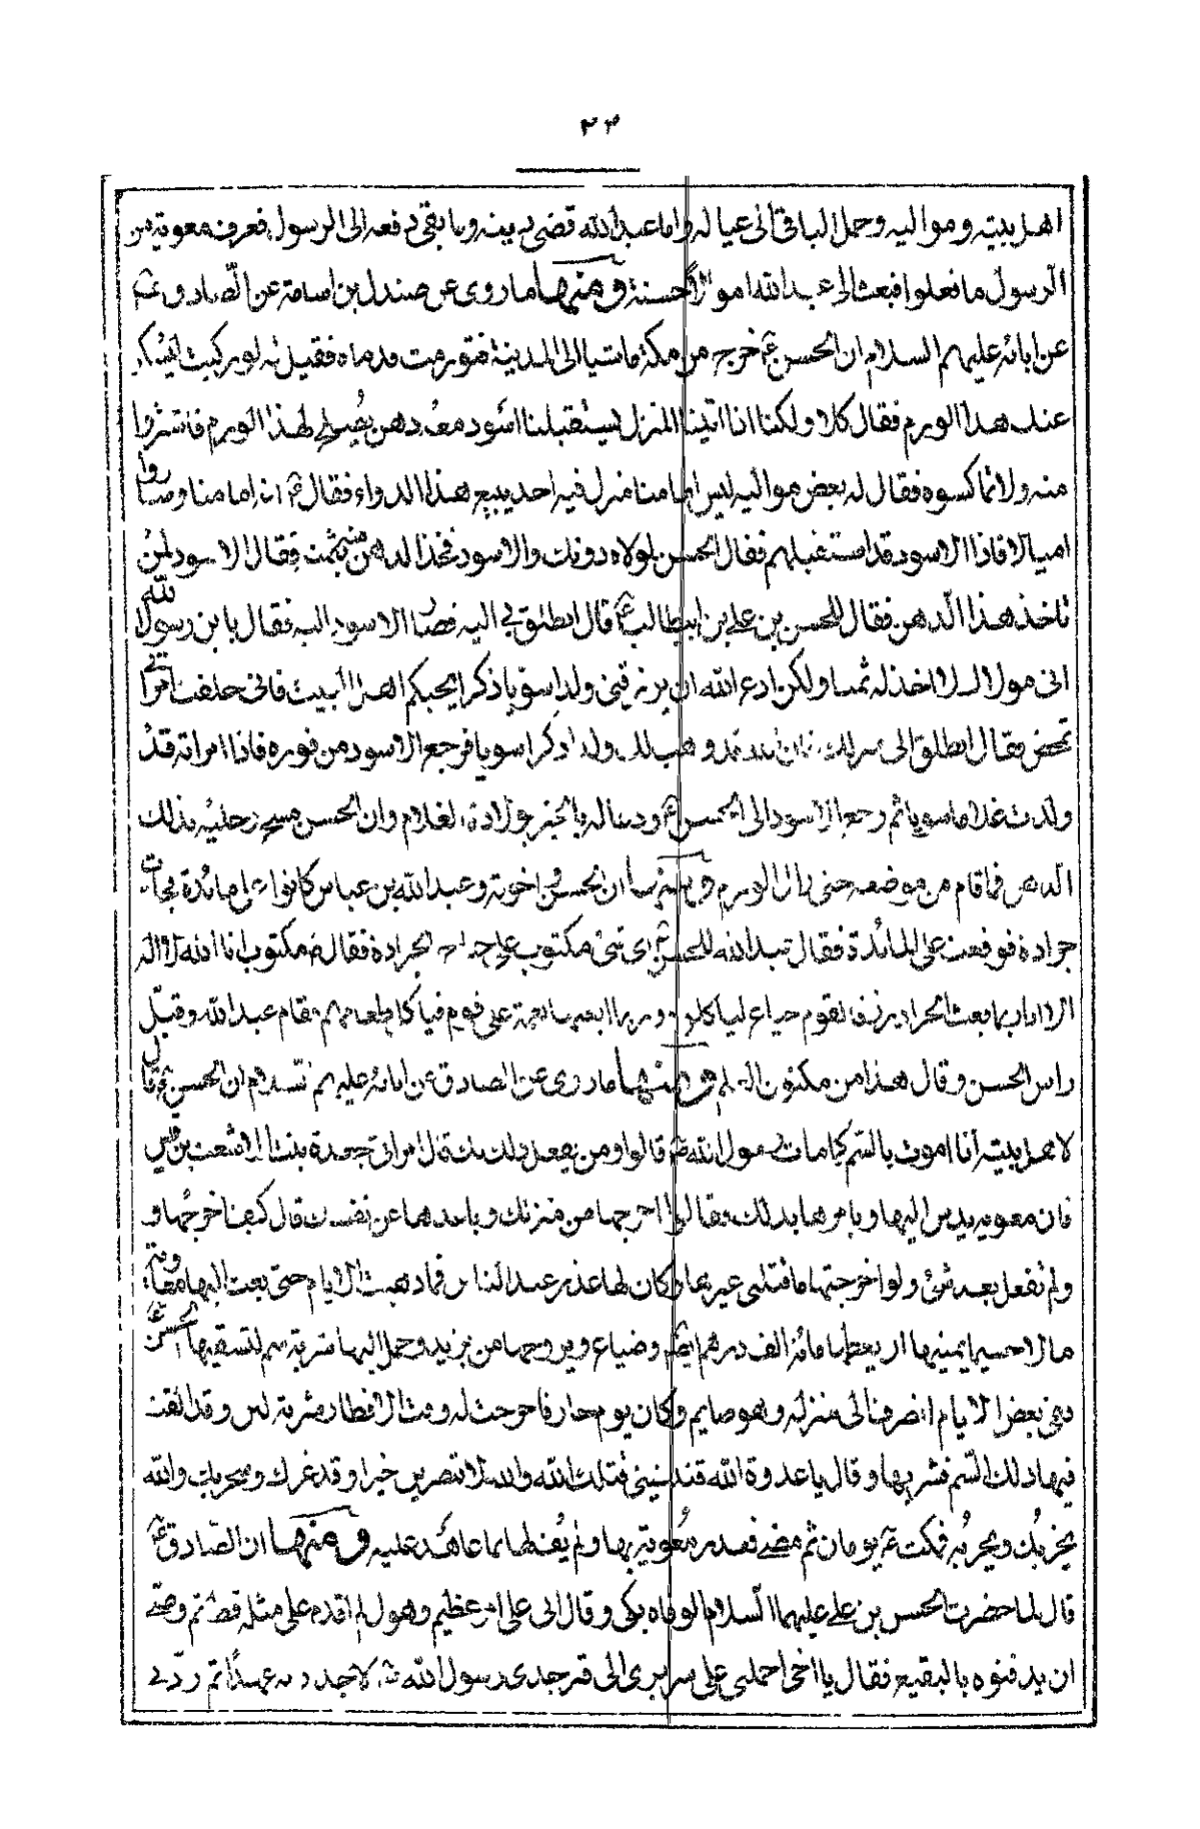 ٢٤
اهل بيته ومواليه وحمل الباقي الى عياله واما عبد الله قضى دينه وما بقي دفعه الى الرسول فعرف معوية من
الرسول ما فعلوا فبعث الى عبد الله اموالا حسنة ومنها ما روى عن صندل بن اسامة عن الصادق عم
عن ابائه عليهم السلام ان الحسن عم خرج من مكة ماشيا الى المدينة فتورمت قدماه فقيل له لو ركبت ليسكن
عنك هذا الورم فقال كلا ولكنا اذا اتينا المنزل يستقبلنا اسود معه دهن يصلح لهذا الورم فاشتروا
منه ولا تماكسوه فقال له بعض مواليه ليس امامنا منزل فيه احد يبيع هذا الدواء فقال عم انه امامنا وساروا
اميالا فاذا الاسود قد استقبلهم فقال الحسن لمولاه دونك والاسود فخذ الدهن منه بثمنه فقال الاسود لمن
تاخذ هذا الدهن فقال للحسن بن علي بن ابيطالب ع قال انطلق بي اليه فصار الاسود اليه فقال يا بن رسول الله
اني مولاك لا اخذ له ثمنا ولكن ادع الله ان يرزقني ولدا سويا ذكرا يحبكم اهل البيت فاني خلفت امراتي
تمخض فقال انطلق الى منزلك فان الله قد وهب لك ولدا ذكرا سويا فرجع الاسود من فوره فاذا امراته قد
ولدت غلاما سويا ثم رجع الاسود الى الحسن عم ودعا له بالخير بولادة الغلام وان الحسن مسح رجليه بذلك
الدهن فما قام من موضعه حتى زال الورم ومنها ان الحسن واخوته وعبد الله بن عباس كانوا على مائدة فجاءت
جرادة فوقعت على المائدة فقال عبد الله للحسن عم اى شئ مكتوب على جناح الجرادة فقال عم مكتوب انا الله لا اله
الا انا ربما بعثت الجراد رزقا لقوم جياع لياكلوه وربما ابعثها نقمة على قوم فياكل طعامهم فقام عبد الله وقبل
راس الحسن وقال هذا من مكنون العلم ومنها ما روى عن الصادق عن ابائه عليهم السلام ان الحسن عم قال
لاهل بيته انا اموت بالسم كما مات رسول الله ص قالوا ومن يفعل ذلك بك قال امراتي جعدة بنت الاشعث بن قيس
فان معوية يدس اليها ويامرها بذلك فقالوا اخرجها من منزلك وباعدها عن نفسك قال كيف اخرجها و
ولم تفعل بعد شئ ولو اخرجتها ما قتلني غيرها وكان لها عذر عند الناس فما ذهبت الايام حتى بعث اليها معوية
مالا جسيما يمنيها ان يعطيها مائة الف درهم ايضا وضياع ويزوجها من يزيد وحمل اليها شربة سم لتسقيها الحسن ع
ففي بعض الايام انصرف الى منزله وهو صايم وكان يوم حار فاخرجت له وقت الافطار شربة لبن وقد القت
فيها ذلك السم فشربها وقال يا عدوة الله قتلتيني قتلك الله والله لا تصيبن خيرا وقد غرك وسخر بك والله
يخزيك ويخزيه فمكث عم يومان ثم مضى فغدر معوية بها ولم يف لها بما عاهد عليه ومنها ان الصادق ع
قال لما حضرت الحسن بن علي عليهما السلام الوفاه بكى وقال انى على امر عظيم وهول لم اقدم على مثله قط ثم وصى
ان يدفنوه بالبقيع فقال يا اخى احملني على سريرى الى قبر جدى رسول الله ص لاجدد به عهدا ثم ردني